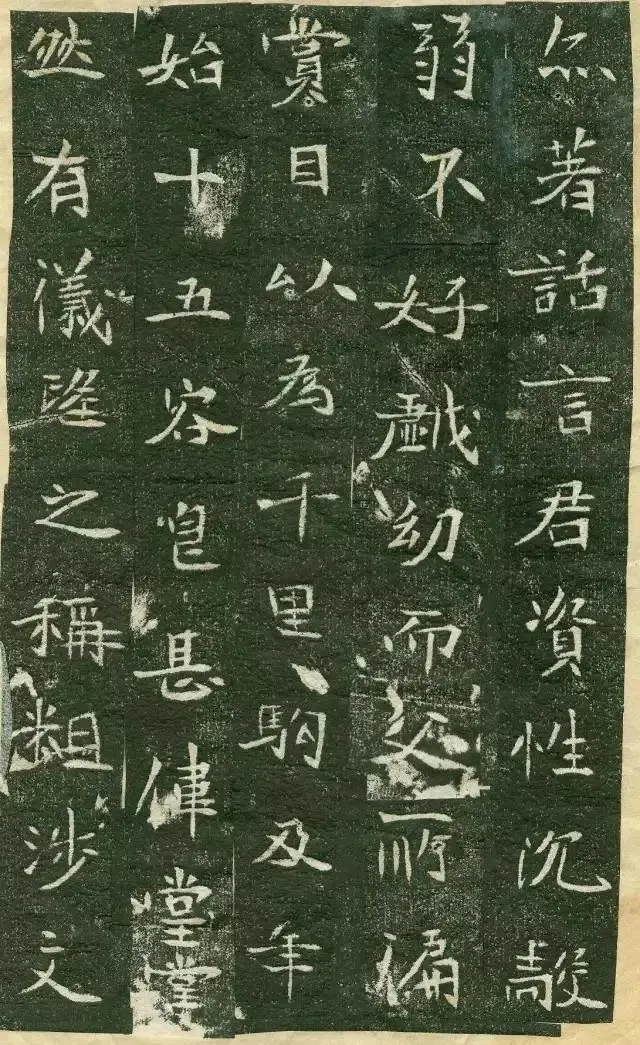 亦著話言君資性沉毅
弱不好戲幼而父所偏
賞目以為千里駒及年
始十五容皃甚偉堂堂
然有儀之稱粗涉文